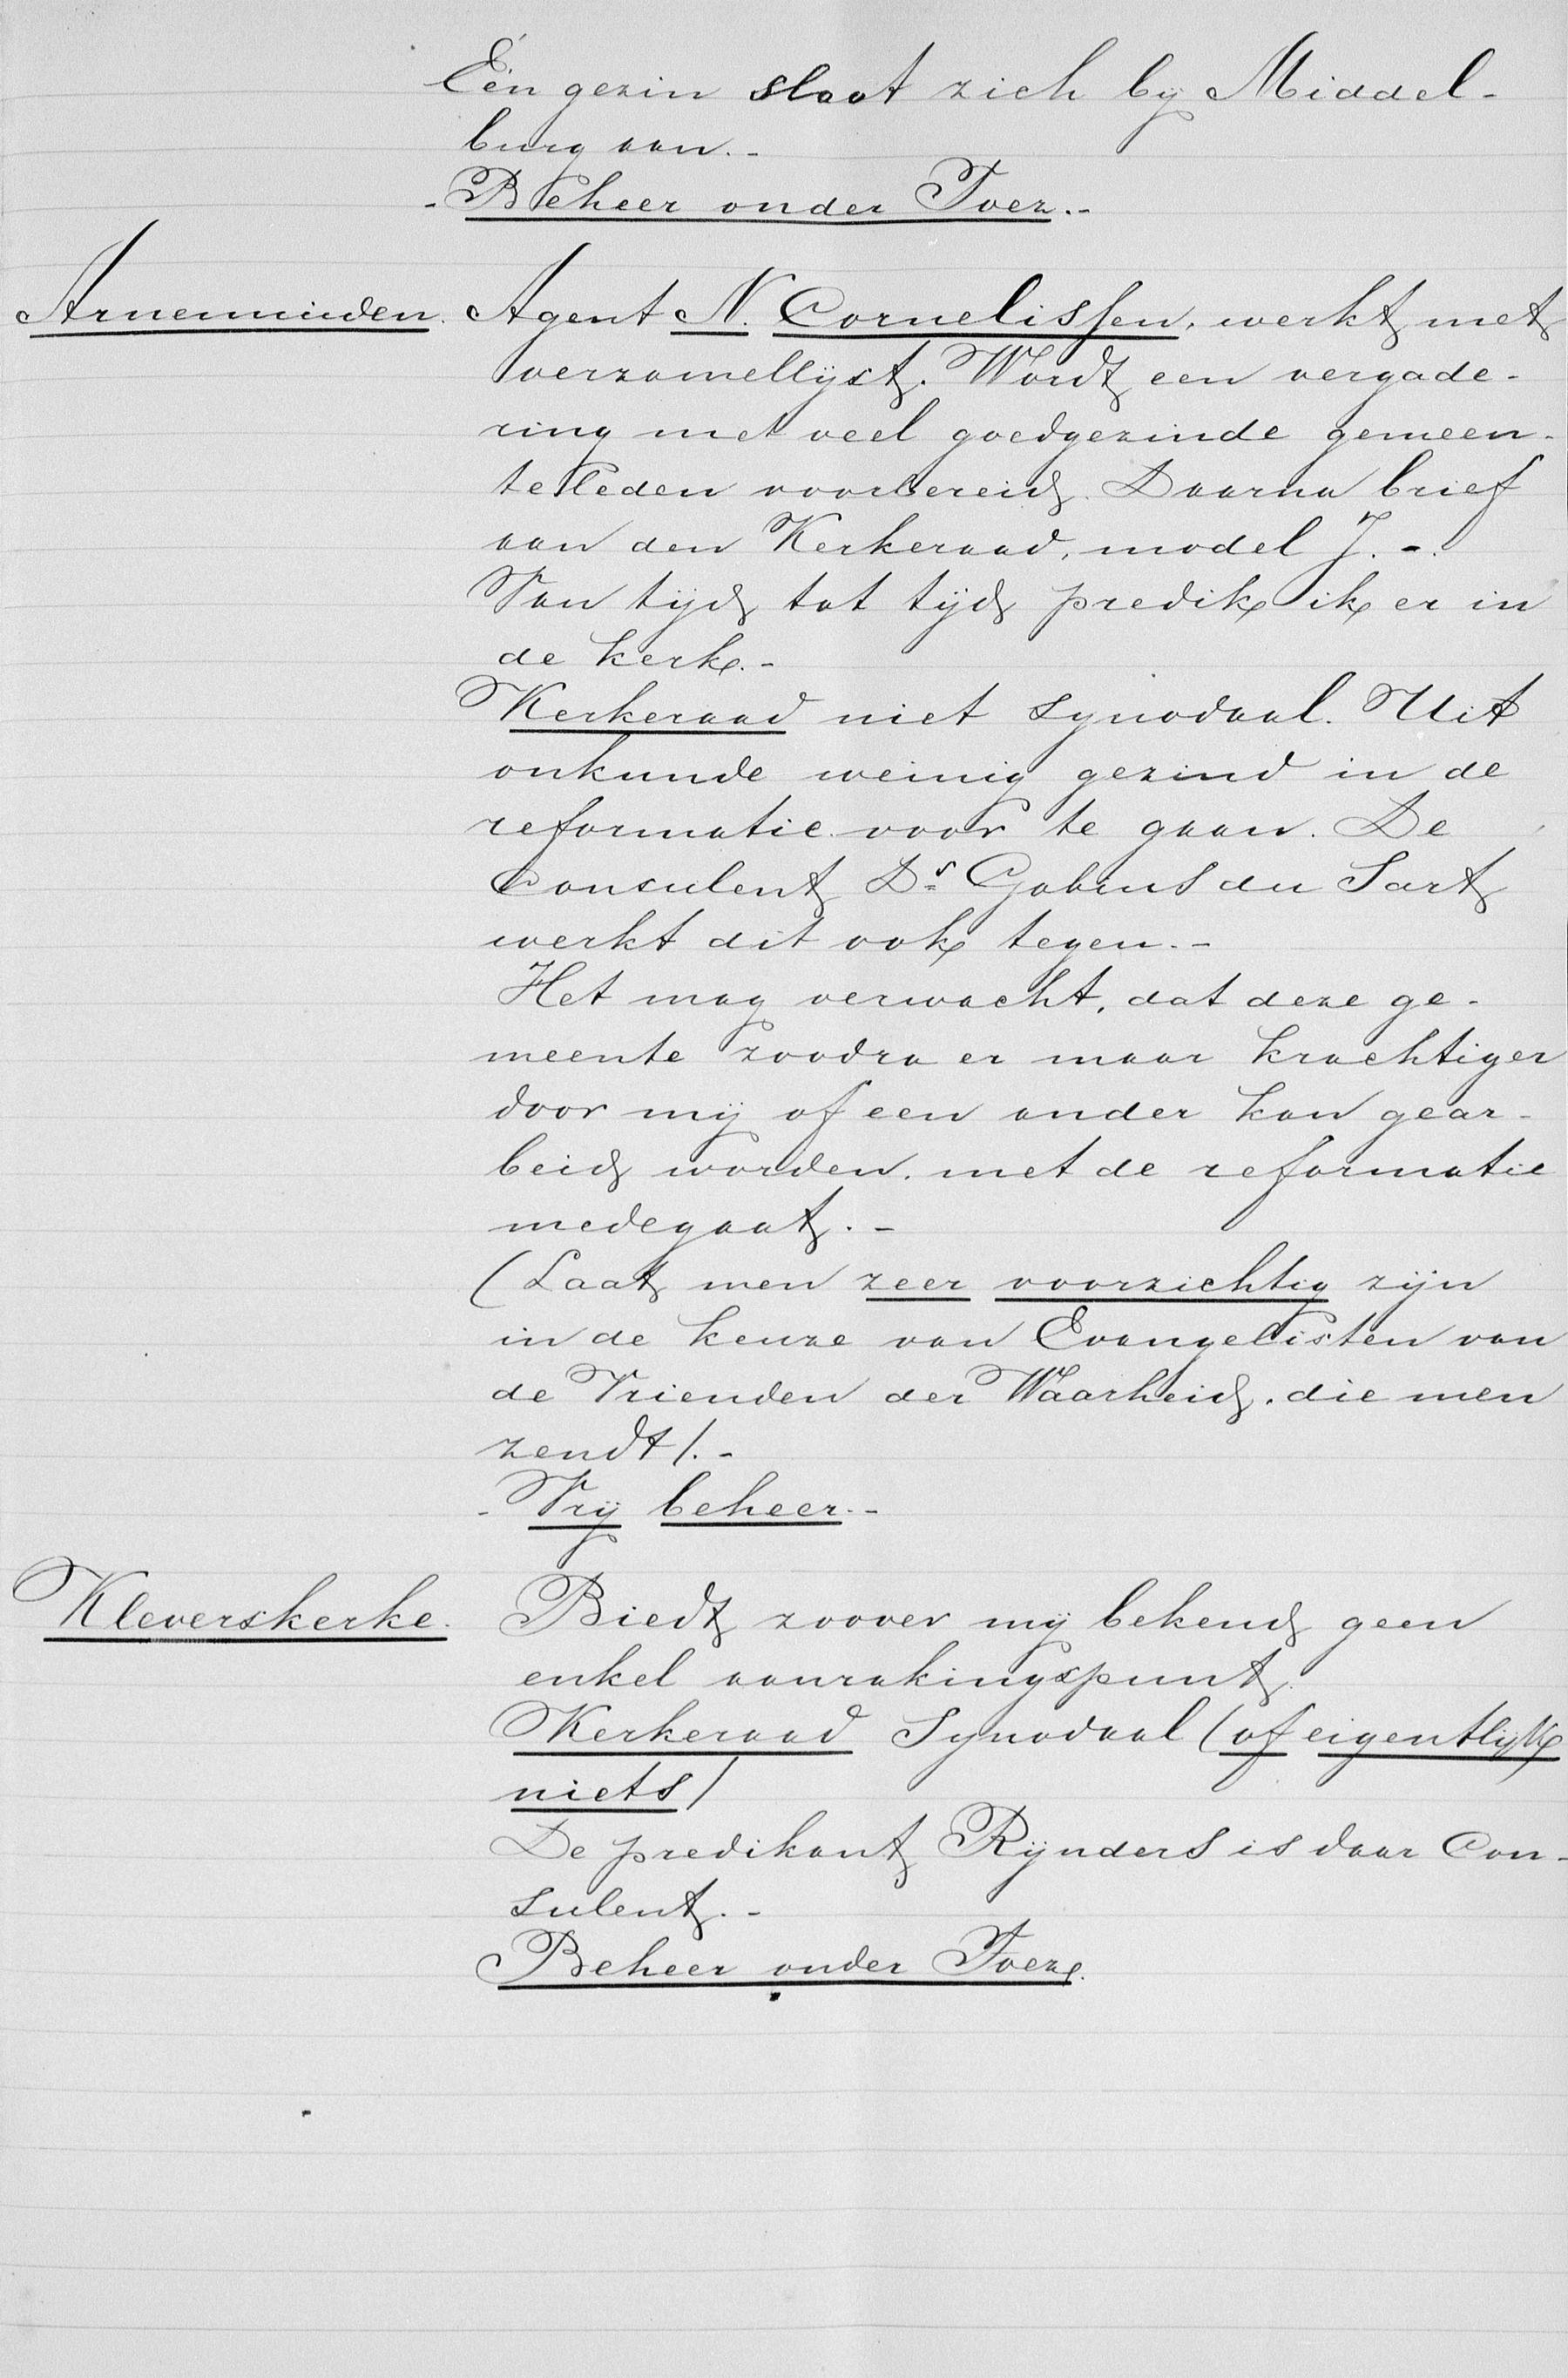 Één gezin sloot zich by Middel-
burg aan.-
- Beheer onder Toez.-
Arnemuiden. Agent N. Cornelissen, werkt met
verzamellijst. Wordt een vergade-
ring met veel goedgezinde gemeen-
teleden voorbereid. Daarna brief
aan den Kerkeraad, model J. -.
Van tijd tot tijd predik ik er in
de kerk.-
Kerkeraad niet Synodaal. Uit
onkunde weinig gezind in de
reformatie voor te gaan. De
Consulent Ds Gobius du Sart
werkt dit ook tegen.-
Het mag verwacht, dat deze ge-
meente zoodra er maar krachtiger
door mij of een ander kan gear-
beid worden, met de reformatie
medegaat.-
(Laat men zeer voorzichtig zijn
in de keuze van Evangelisten van
de Vrienden der Waarheid, die men
zendt).-
- Vrij beheer.-
Kleverskerke. Biedt zoover mij bekend geen
enkel aanrakingspunt.
Kerkeraad Synodaal (of eigentlijk
niets)
De predikant Rijnders is daar Con-
sulent.-
Beheer onder Toez.